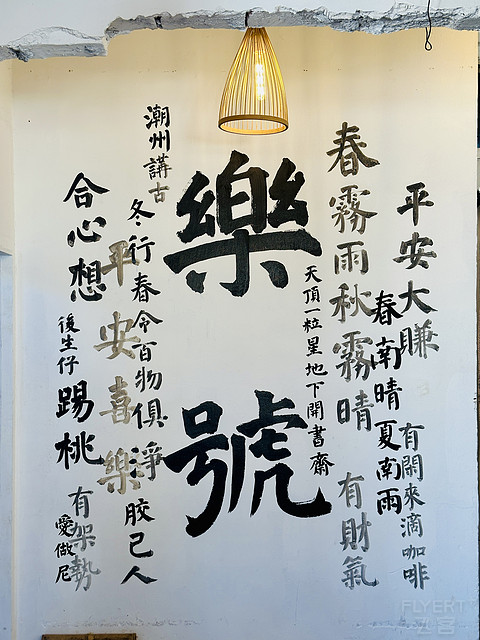 平安大賺 有閒來滴咖啡
春南晴夏南雨
春霧雨秋霧晴 有財氣
天頂一粒星地下開書齋
樂號
潮州講古
冬行春令百物俱淨 胶己人
平安喜樂
合心想 後生仔 踢桃 有架勢
愛做尼
FLYERT